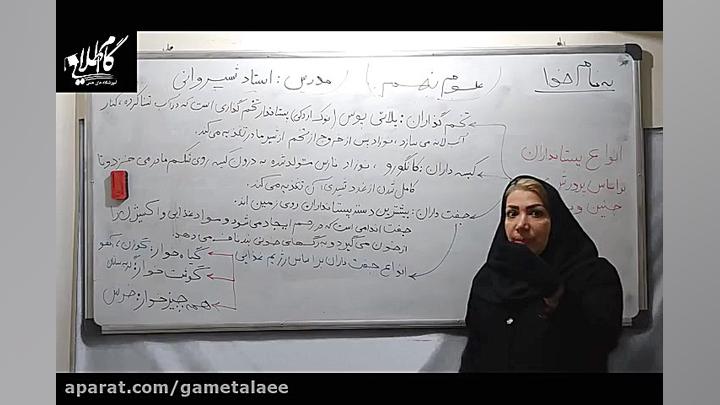 گام طلایی
آموزشگاه های علمی
به نام خدا
علوم نهم
مدرس: استاد شیروانی
انواع پستانداران
براساس پرورش
جنین و
تخم گذاران: پلاتی پوس (نوک اردکی) پستاندار تخم گذاری است که در آب شنا کرده، کنار
آب لانه می سازد، نوزاد پس از خروج از تخم از شیر مادر تغذیه می کند.
کیسه داران: کانگورو، نوزاد نارس متولد شده به درون کیسه روی شکم مادر می خزد و تا
کامل شدن از غدد شیری آن تغذیه می کند.
جفت داران: بیشترین دسته پستانداران روی زمین اند.
جفت اندامی است که در رحم ایجاد می شود و مواد غذایی و اکسیژن را
از خون می گیرد و به رگهای خونی بند ناف می دهد
انواع جفت داران براساس رژیم غذایی
گیاه خوار: گوزن،
گوشت خوار:
همه چیز خوار: خرس
aparat.com/gametalaee